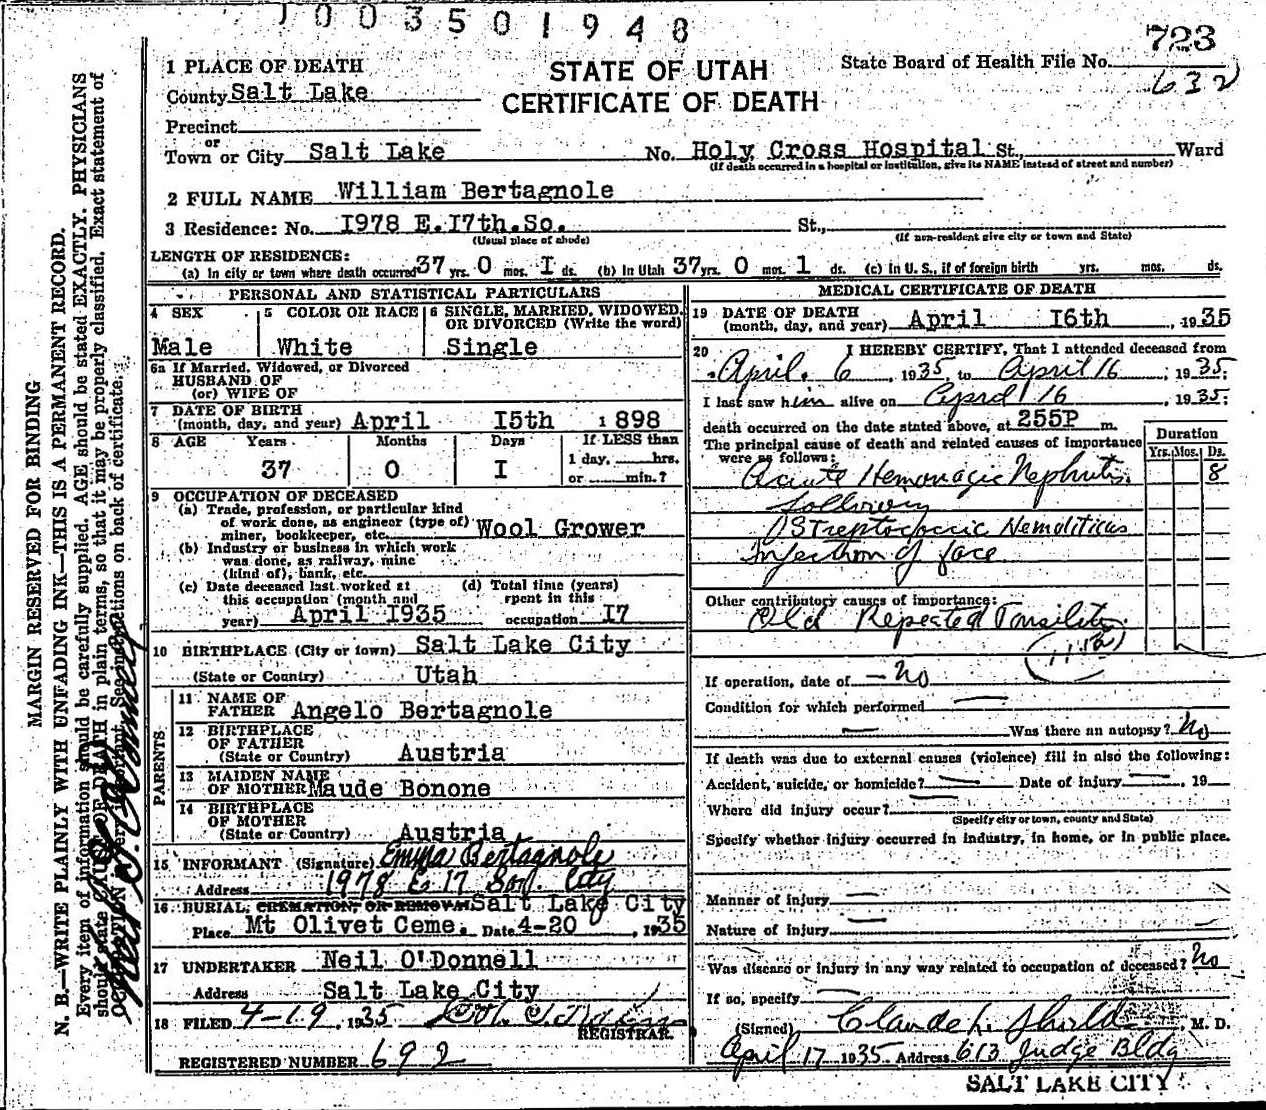 1003501948
723
1 PLACE OF DEATH
STATE OF UTAH
State Board of Health File No.
632
County Salt Lake
CERTIFICATE OF DEATH
Precinct
or
Town or City Salt Lake No. Holy Cross Hospital St., Ward
(If death occurred in a hospital or institution, give its NAME instead of street and number)
2 FULL NAME William Bertagnole
3 Residence: No. I978 E. I7th.So. St.,
(Usual place of abode) (If non-resident give city or town and State)
LENGTH OF RESIDENCE:
(a) In city or town where death occurred 37 yrs. 0 mos. I ds. (b) In Utah 37 yrs. 0 mos. 1 ds. (c) In U. S., if of foreign birth yrs. mos. ds.
PERSONAL AND STATISTICAL PARTICULARS
4 SEX 5 COLOR OR RACE 6 SINGLE, MARRIED, WIDOWED, OR DIVORCED (Write the word)
Male White Single
6a If Married, Widowed, or Divorced
HUSBAND OF
(or) WIFE OF
7 DATE OF BIRTH
(month, day, and year) April I5th 1898
8 AGE Years Months Days If LESS than
1 day, hrs.
37 0 I or min.?
9 OCCUPATION OF DECEASED
(a) Trade, profession, or particular kind
of work done, as engineer (type of)
miner, bookkeeper, etc. Wool Grower
(b) Industry or business in which work
was done, as railway, mine
(kind of), bank, etc.
(c) Date deceased last worked at
this occupation (month and
year) April I935
(d) Total time (years)
spent in this
occupation I7
10 BIRTHPLACE (City or town) Salt Lake City
(State or Country) Utah
PARENTS
11 NAME OF
FATHER Angelo Bertagnole
12 BIRTHPLACE
OF FATHER
(State or Country) Austria
13 MAIDEN NAME
OF MOTHER Maude Bonone
14 BIRTHPLACE
OF MOTHER
(State or Country) Austria
15 INFORMANT (Signature) Emma Bertagnole
Address 1978 E 17 So. City
16 BURIAL, CREMATION, OR REMOVAL Salt Lake City
Place Mt Olivet Ceme. Date 4-20, 1935
17 UNDERTAKER Neil O'Donnell
Address Salt Lake City
18 FILED 4-19, 1935
REGISTRAR.
REGISTERED NUMBER 692
MEDICAL CERTIFICATE OF DEATH
19 DATE OF DEATH
(month, day, and year) April I6th, 1935
20 I HEREBY CERTIFY, That I attended deceased from
April 6, 1935 to April 16, 1935;
I last saw him alive on April 16, 1935;
death occurred on the date stated above, at 255P m.
The principal cause of death and related causes of importance
were as follows:
Duration
Yrs. Mos. Ds.
Acute Hemoragic Nephritis 8
following
Streptococcic Hemoliticus
infection of face
Other contributory causes of importance:
Old Repeated Tonsilitis
If operation, date of - no
Condition for which performed
Was there an autopsy? No
If death was due to external causes (violence) fill in also the following:
Accident, suicide, or homicide? Date of injury 19
Where did injury occur?
(Specify city or town, county and State)
Specify whether injury occurred in industry, in home, or in public place.
Manner of injury
Nature of injury
Was disease or injury in any way related to occupation of deceased? No
If so, specify
(Signed) Claude L. Shields, M. D.
April 17 1935 Address 613 Judge Bldg
SALT LAKE CITY
MARGIN RESERVED FOR BINDING
N. B.—WRITE PLAINLY WITH UNFADING INK—THIS IS A PERMANENT RECORD.
Every item of information should be carefully supplied. AGE should be stated EXACTLY. PHYSICIANS
should state CAUSE OF DEATH in plain terms, so that it may be properly classified. Exact statement of
OCCUPATION is very important. See instructions on back of certificate.